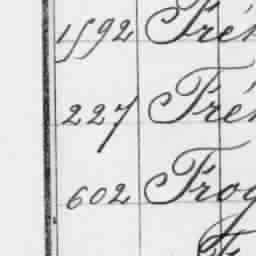 1592 Fré
227 Fré
602 Frog